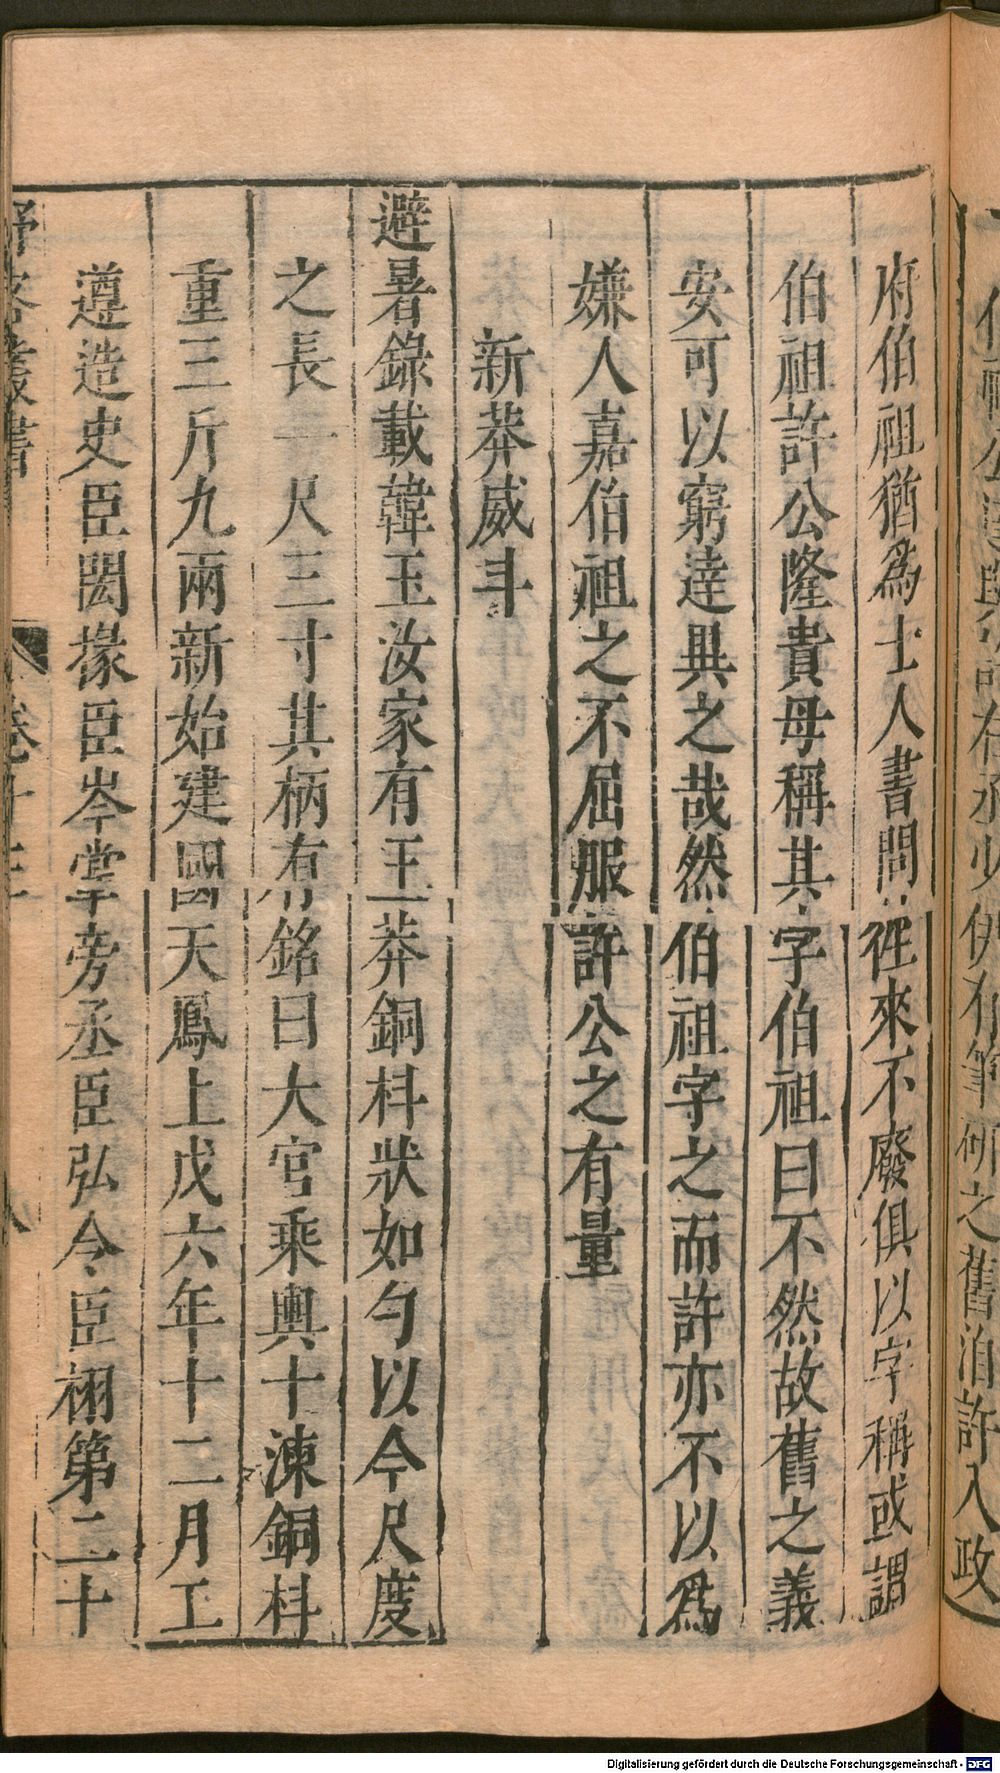 府伯祖猶為士人書問往來不廢俱以字稱或謂
伯祖許公隆貴毋稱其字伯祖曰不然故舊之義
安可以窮達異之哉然伯祖字之而許亦不以為
嫌人嘉伯祖之不屈服許公之有量
新莽威斗
避暑錄載韓玉汝家有王莽銅枓狀如勺以今尺度
之長一尺三寸其柄有銘曰大官乘輿十湅銅枓
重三斤九兩新始建國天鳳上戊六年十二月工
遵造史臣閎掾臣岑掌旁丞臣弘令臣栩第二十
野客叢書 卷十三 八
Digitalisierung gefördert durch die Deutsche Forschungsgemeinschaft - DFG